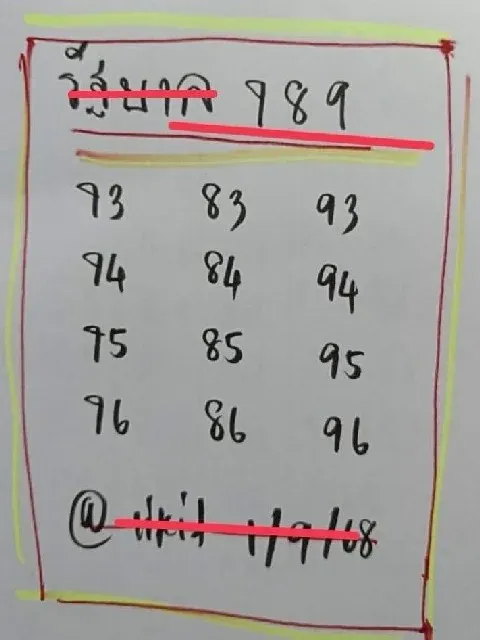 รัฐบาล 789
73 83 93
74 84 94
75 85 95
76 86 96
@ 1/9/68